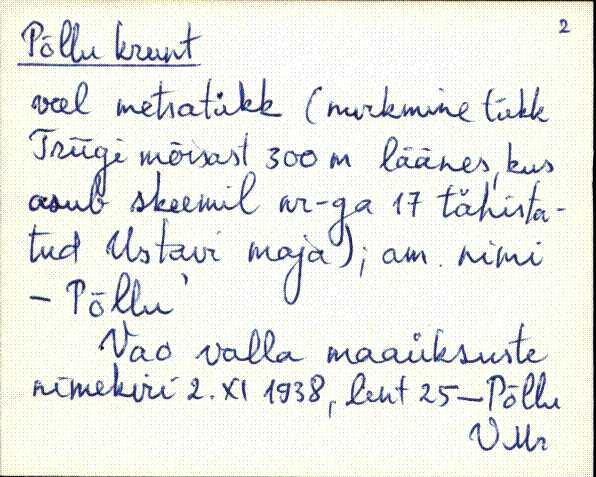 2
Põllu krunt
veel metsatükk (nurkmine tükk
Triigi mõisast 300 m läänes, kus
asub skeemil nr-ga 17 tähista-
tud Ustavi maja); am. nimi
– Põllu'
Vao valla maaüksuste
nimekiri 2. XI 1938, leht 25 – Põllu
V Mr